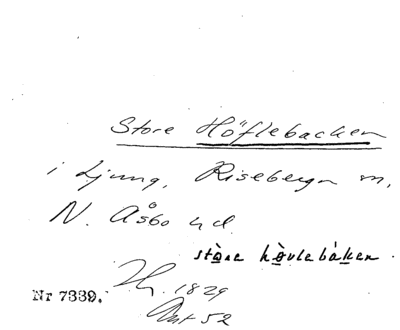 Store Höflebacken
i Ljung, Riseberga sn,
N. Åsbo hd.
stòre hòvlebàken.
Nr 7339.
1829
Ant 52